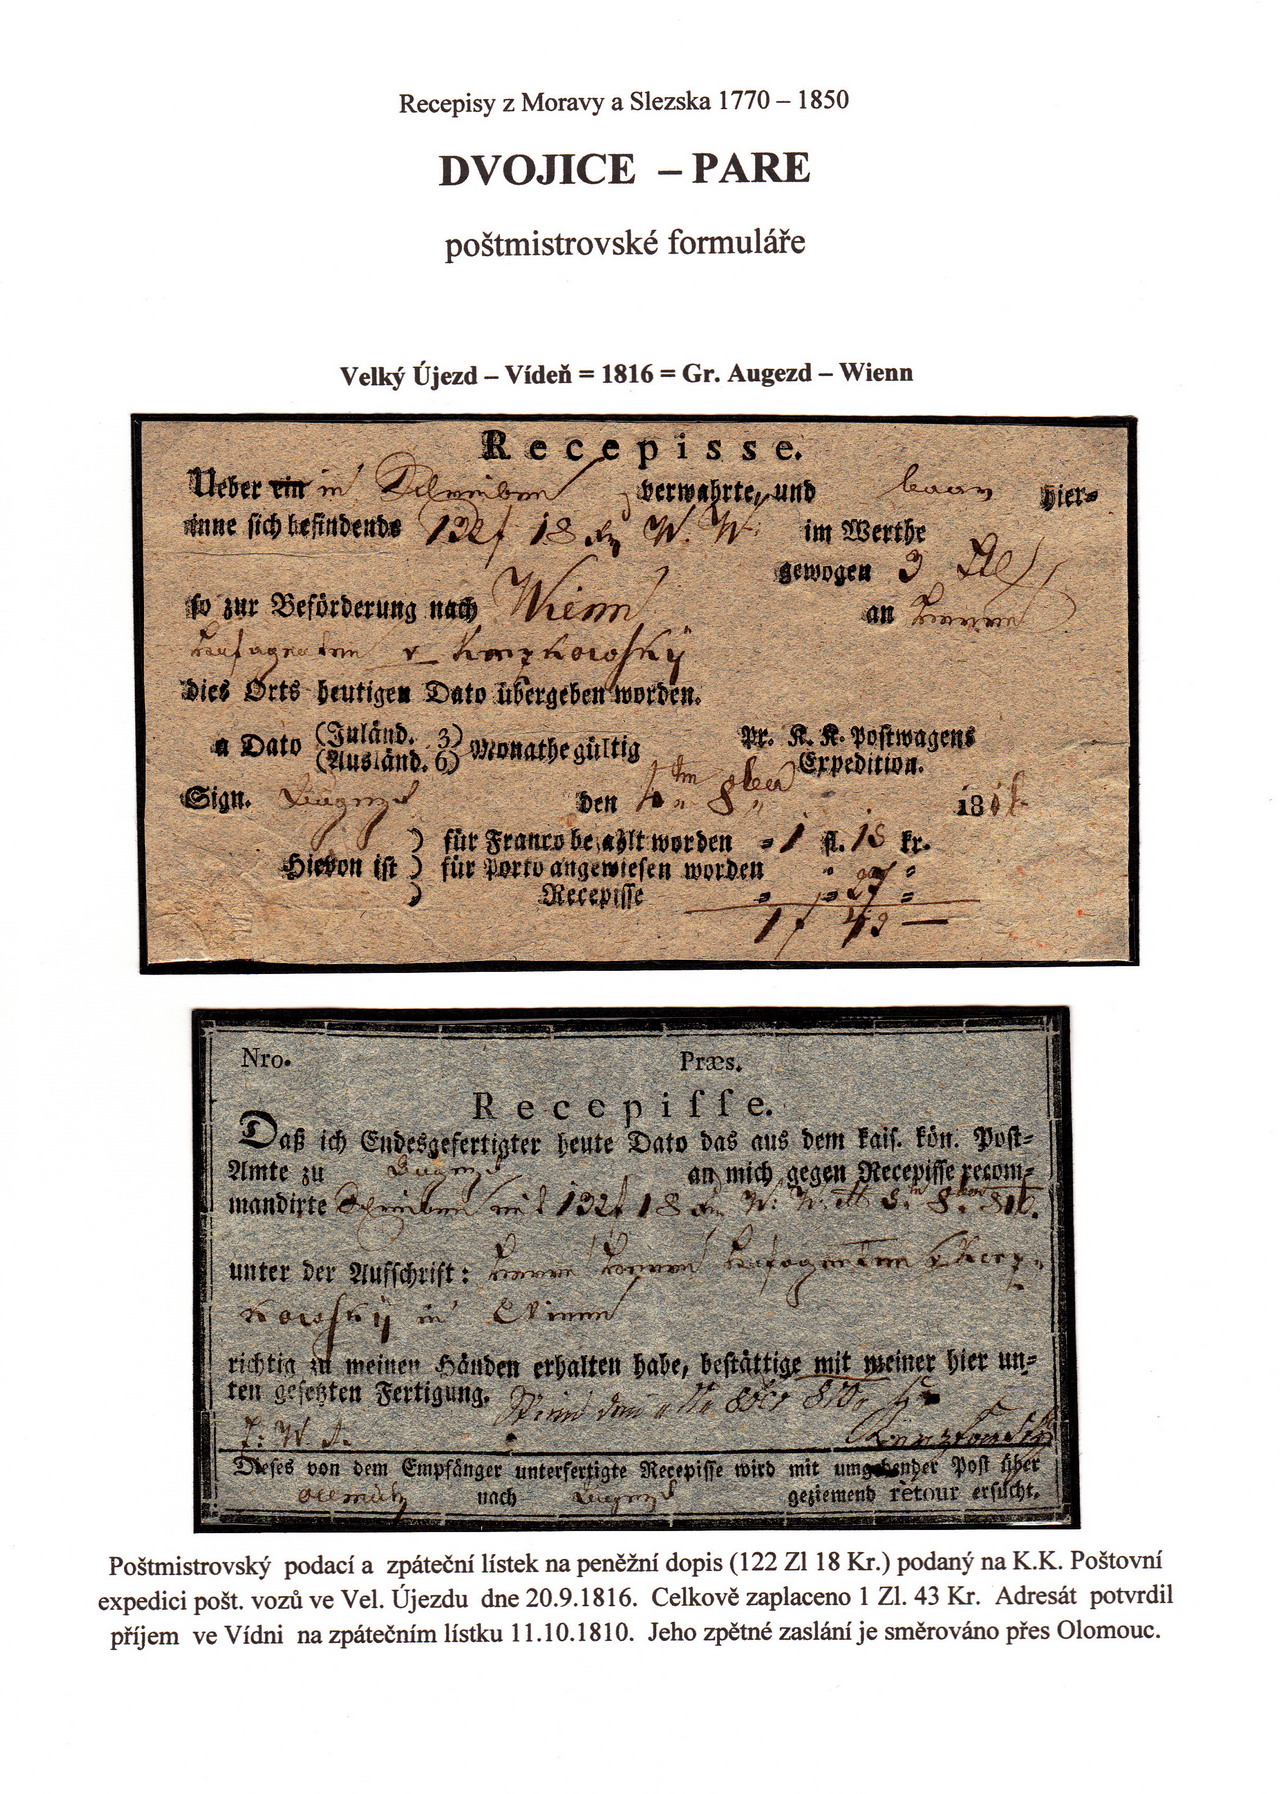 Recepisy z Moravy a Slezska 1770 – 1850
DVOJICE – PARE
poštmistrovské formuláře
Velký Újezd – Vídeň = 1816 = Gr. Augezd – Wienn
Recepisse.
Ueber ein in Schreiben verwahrte, und baar hier=
inne sich befindende 132 f 18 W. W. im Werthe
gewogen 3
so zur Beförderung nach Wienn an Herrn
Hofagenten v
dies Orts heutigen Dato übergeben worden.
a Dato (Inländ. 3) Monathe gültig Pr. K. K. Postwagens
(Ausländ. 6) Expedition.
Sign. Augezd den 8ber 181
) für Franco bezahlt worden = 1 fl. 18 kr.
Hievon ist ) für Porto angewiesen worden
) Recepisse
1 f 43 —
Nro. Præs.
Recepiſſe.
Daß ich Endesgefertigter heute Dato das aus dem kais. kön. Post=
Amte zu Augezd an mich gegen Recepisse recom=
mandirte Schreiben mit 132 f 18 W. W. 816.
unter der Aufschrift: Herrn Hofagenten v
kowsky in Wienn
richtig zu meinen Händen erhalten habe, bestättige mit meiner hier un=
ten gesetzten Fertigung.
Dieses von dem Empfänger unterfertigte Recepisse wird mit umgehender Post über
Ollmütz nach Augezd geziemend retour ersucht.
Poštmistrovský podací a zpáteční lístek na peněžní dopis (122 Zl 18 Kr.) podaný na K.K. Poštovní
expedici pošt. vozů ve Vel. Újezdu dne 20.9.1816. Celkově zaplaceno 1 Zl. 43 Kr. Adresát potvrdil
příjem ve Vídni na zpátečním lístku 11.10.1810. Jeho zpětné zaslání je směrováno přes Olomouc.